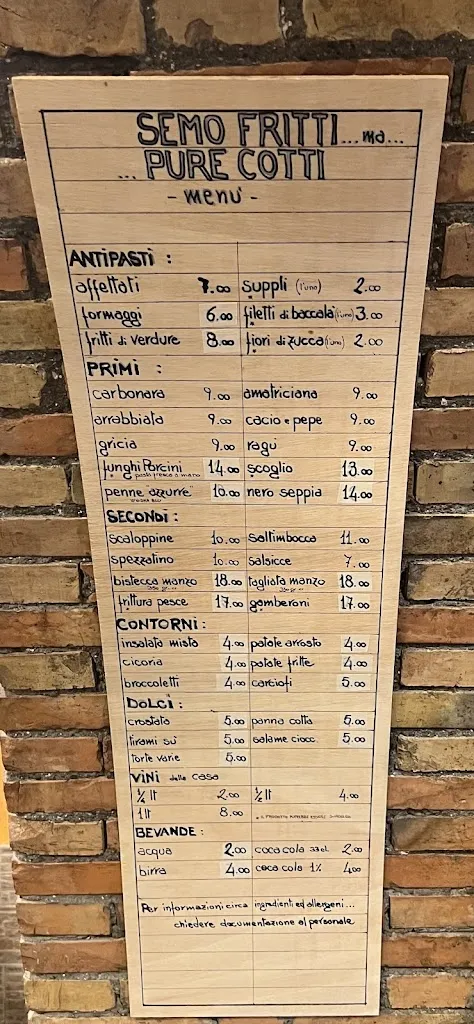 SEMO FRITTI... ma...
... PURE COTTI
- menu' -
ANTIPASTI :
affettati 7.00 suppli (l'uno) 2.00
formaggi 6.00 filetti di baccala' (l'uno) 3.00
fritti di verdure 8.00 fiori di zucca (l'uno) 2.00
PRIMI :
carbonara 9.00 amatriciana 9.00
arrabbiata 9.00 cacio e pepe 9.00
gricia 9.00 ragu' 9.00
funghi Porcini 14.00 scoglio 13.00
pasta fresca a mano
penne "azzurre" 10.00 nero seppia 14.00
SECONDI :
scaloppine 10.00 saltimbocca 11.00
spezzatino 10.00 salsicce 7.00
bistecca manzo 18.00 tagliata manzo 18.00
frittura pesce 17.00 gamberoni 17.00
CONTORNI :
insalata mista 4.00 patate arrosto 4.00
cicoria 4.00 patate fritte 4.00
broccoletti 4.00 carciofi 5.00
DOLCI :
crostata 5.00 panna cotta 5.00
tirami su' 5.00 salame ciocc. 5.00
torte varie 5.00
VINI della casa
¼ lt 2.00 ½ lt 4.00
1 lt 8.00
BEVANDE :
acqua 2.00 coca cola 33cl. 2.00
birra 4.00 coca cola 1lt. 4.00
Per informazioni circa ingredienti ed allergeni...
chiedere documentazione al personale